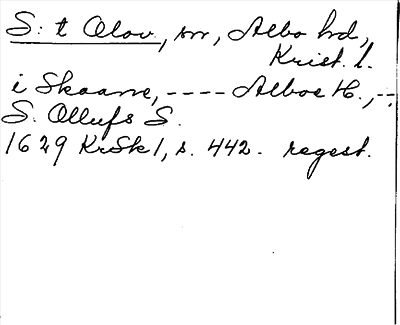 S:t Olov, sn, Albo hd,
Krist. l.
i Skaane, ---- Alboe H., --,
S. Ollufs S.
1629 KrSk1, s. 442. regest.